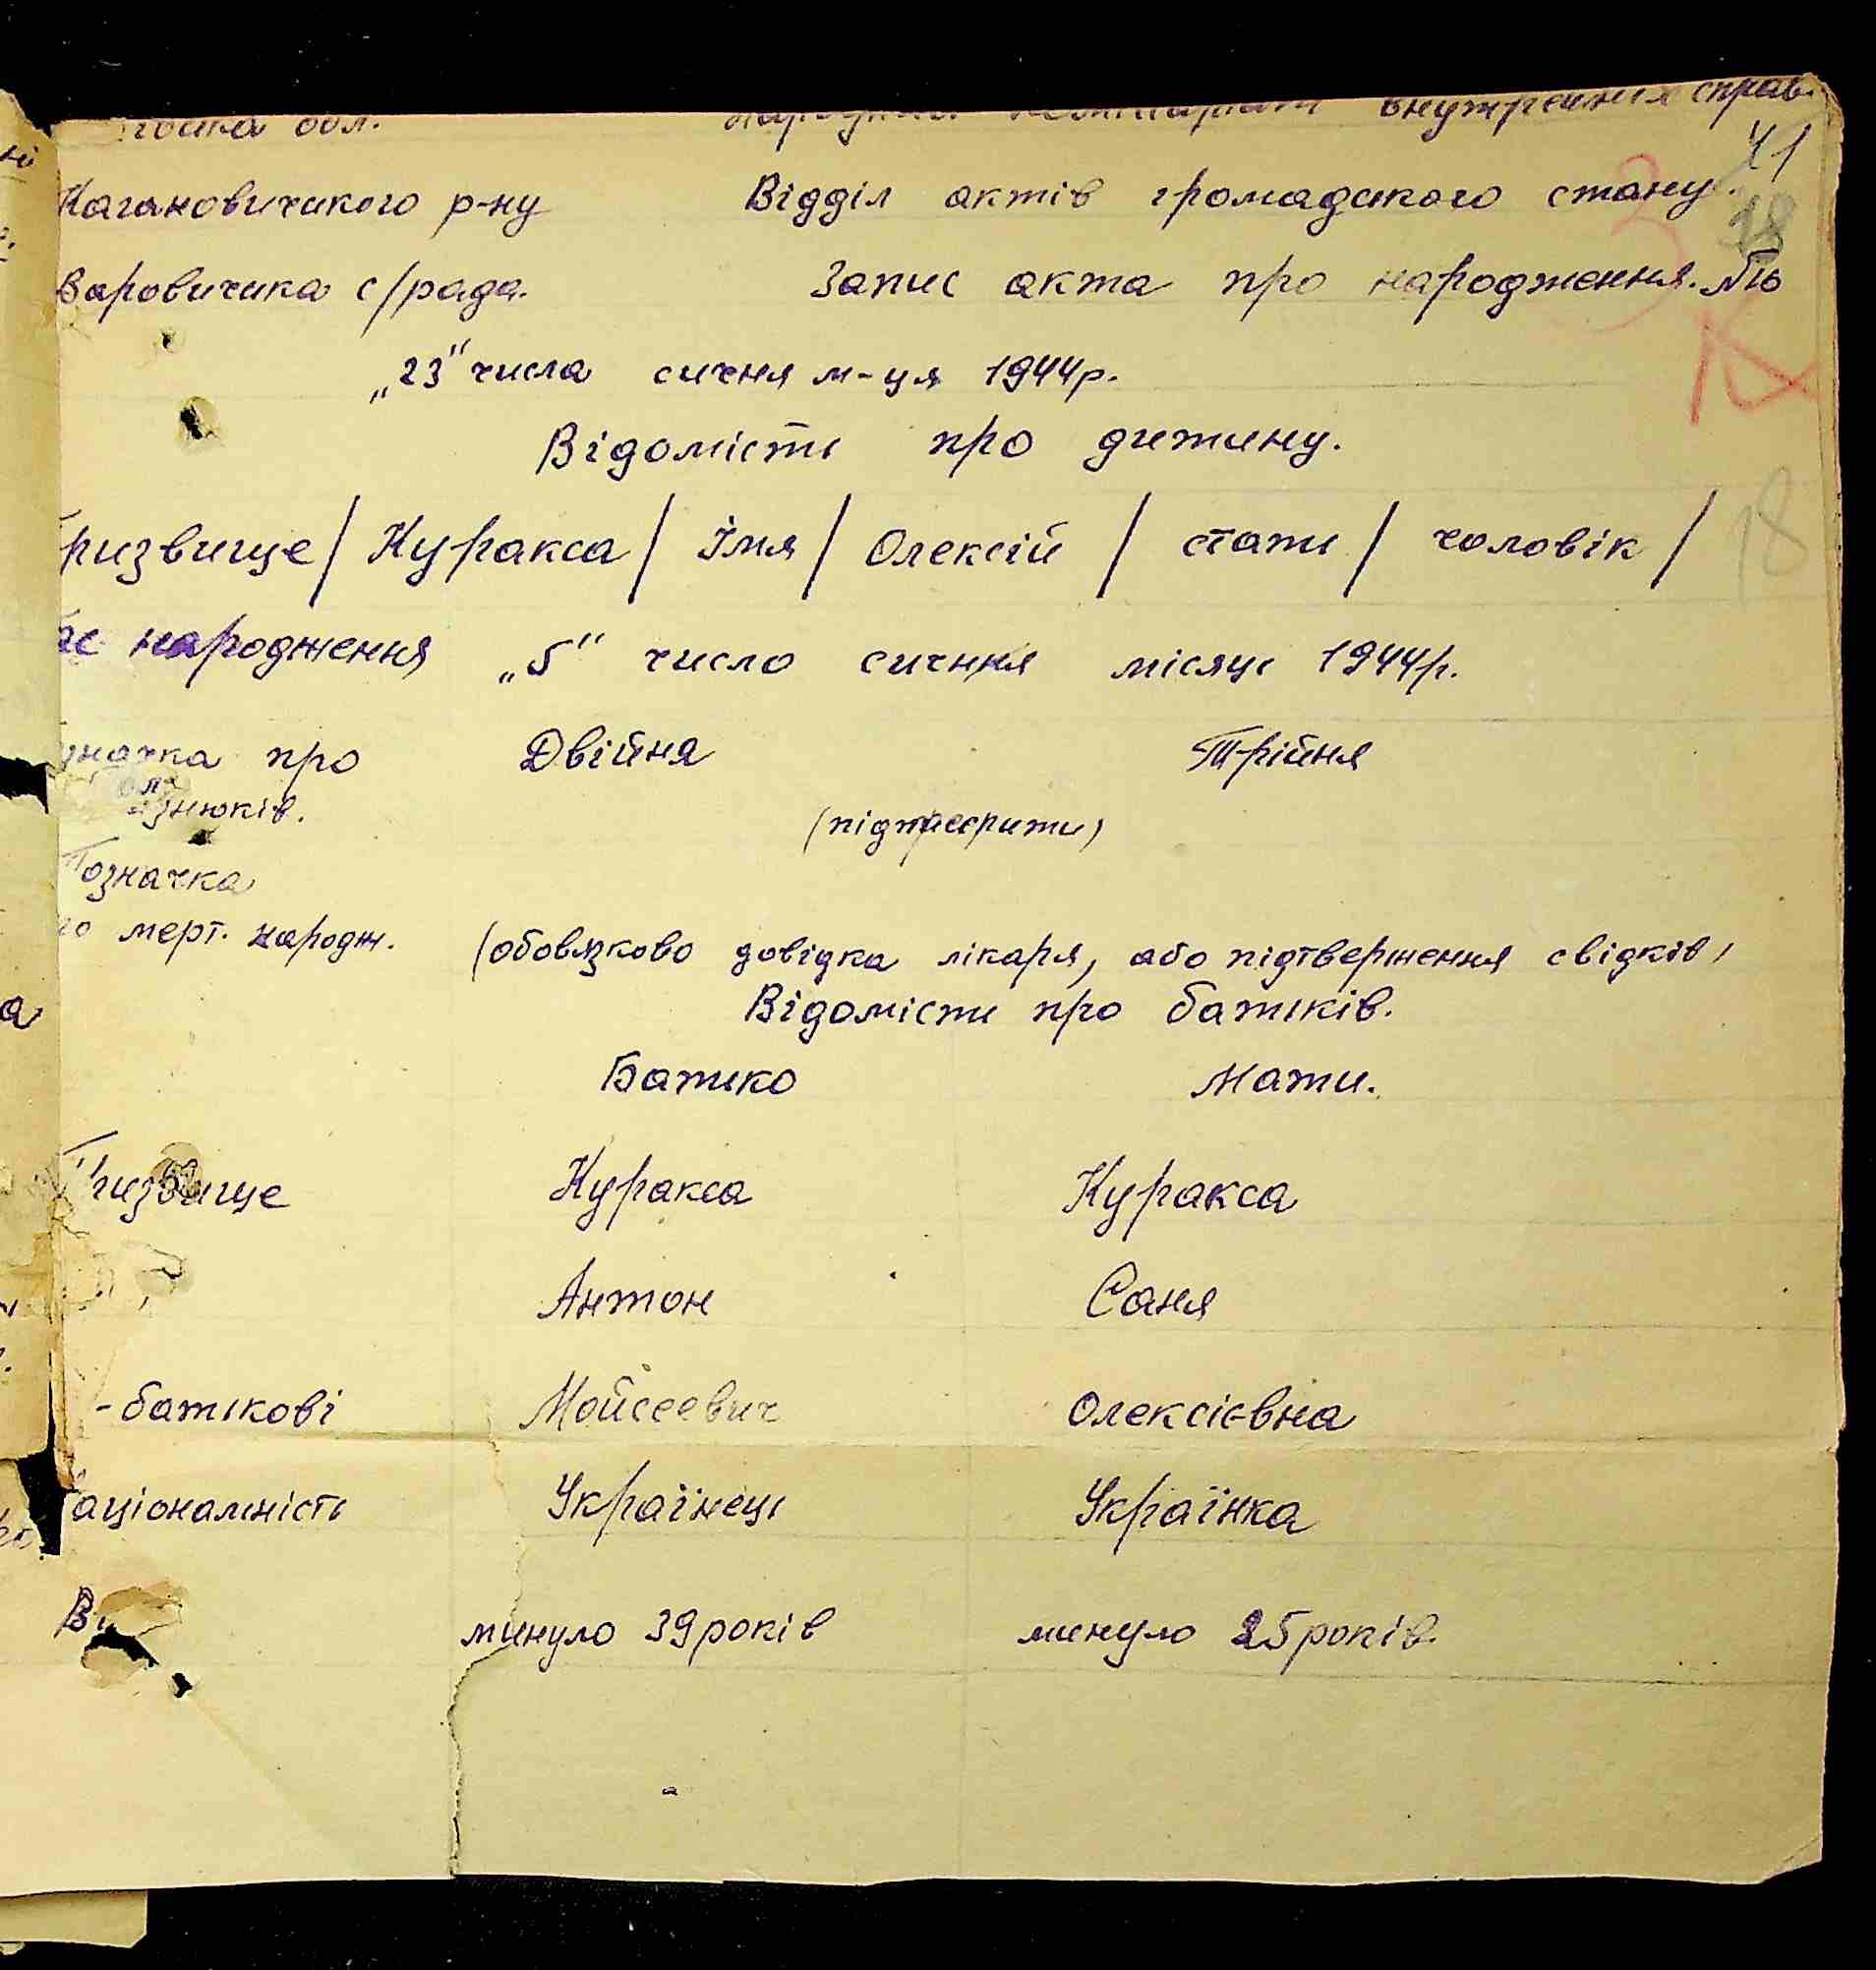 обл. внутренних справ.
41
Кагановичського р-ну Відділ актів громадського стану.
38
Варовичська с/рада. Запис акта про народження. №
„23" числа січня м-ця 1944р.
Відомість про дитину.
ризвище / Куракса / Імя / Олексій / стать / чоловік /
18
ас народження „5" число сичння місяць 1944р.
значка про Двійня Трійня
знюків. (підкреслити)
Позначка
ро мерт. народж. (обовязково довідка лікаря, або підтвердження свідків)
Відомісти про батьків.
Батько Мати.
Призвище Куракса Куракса
Антон Саня
-батькові Мойсеевич Олексієвна
аціональність Українець Українка
минуло 39 років минуло 25 років.